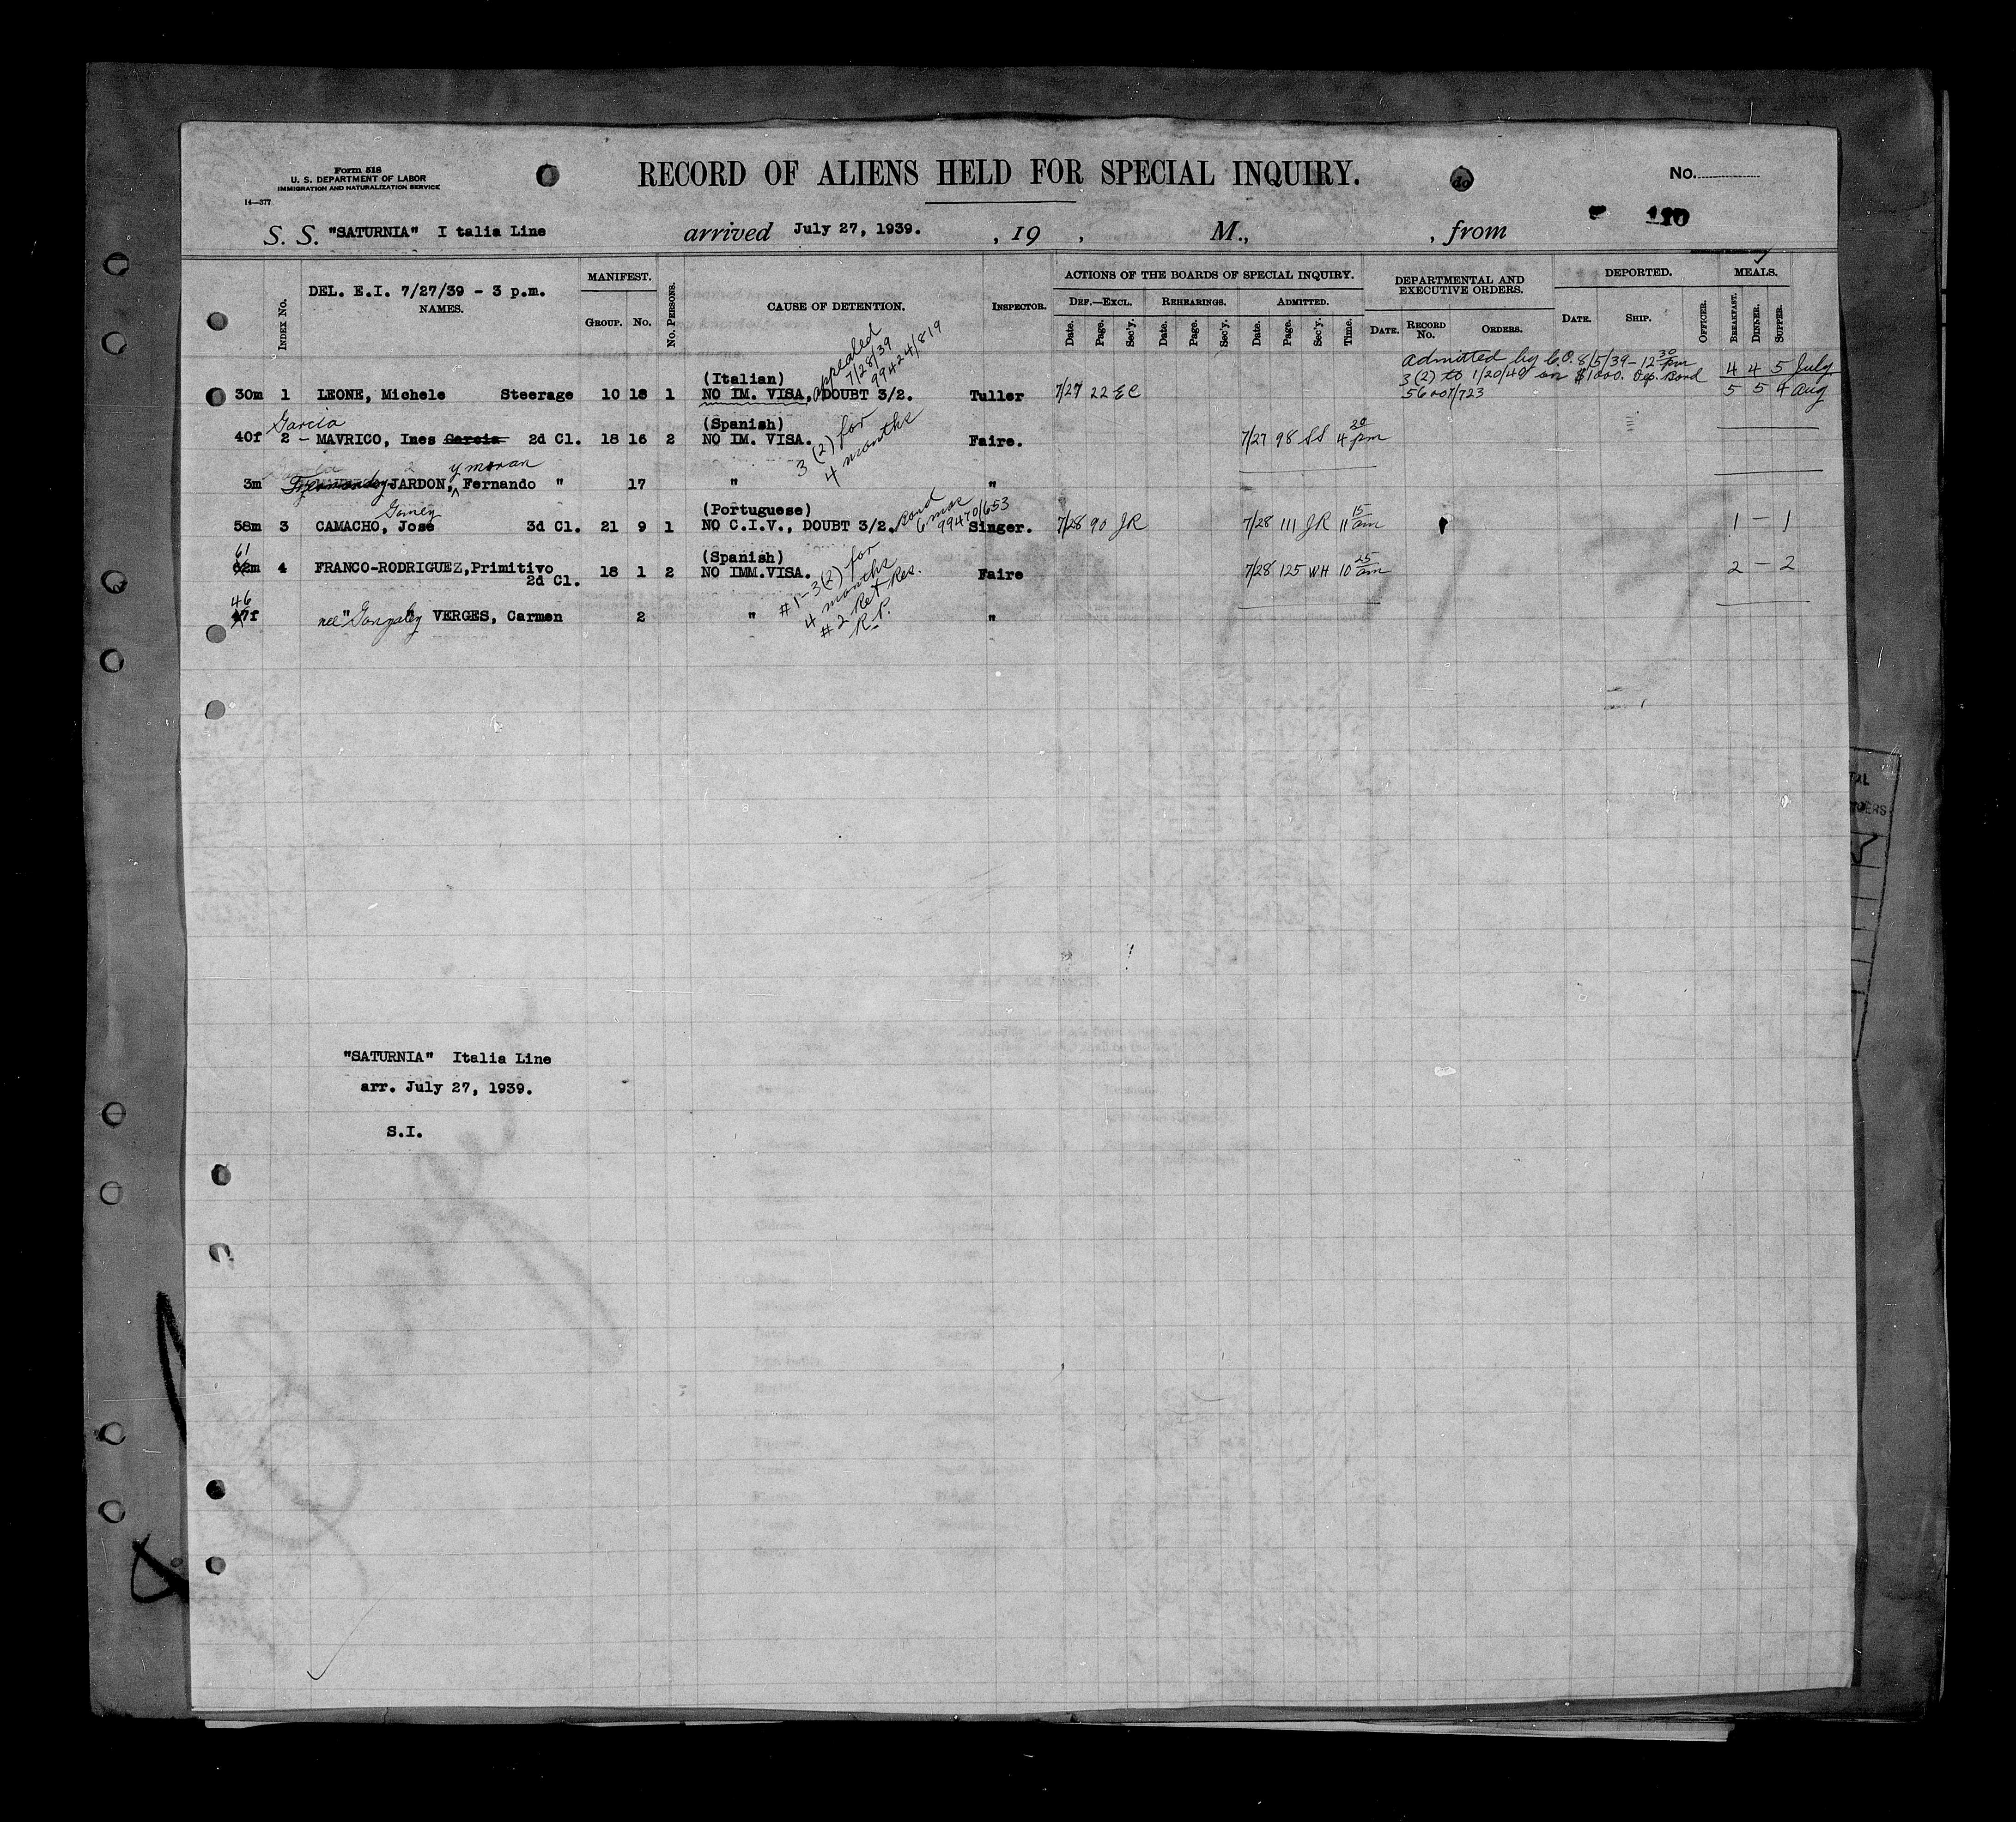 Form 518
U. S. DEPARTMENT OF LABOR
IMMIGRATION AND NATURALIZATION SERVICE
14—377
RECORD OF ALIENS HELD FOR SPECIAL INQUIRY.
do
No.
110
S. S. "SATURNIA" I talia Line arrived July 27, 1939. , 19 , M., , from
DEL. E.I. 7/27/39 - 3 p.m.
INDEX No. NAMES. MANIFEST. GROUP. No. No. PERSONS. CAUSE OF DETENTION. INSPECTOR.
ACTIONS OF THE BOARDS OF SPECIAL INQUIRY.
DEF.—EXCL. REHEARINGS. ADMITTED.
Date. Page. Sec'y. Date. Page. Sec'y. Date. Page. Sec'y. Time.
DEPARTMENTAL AND EXECUTIVE ORDERS.
DATE. RECORD No. ORDERS.
DEPORTED.
DATE. SHIP. OFFICER.
MEALS.
BREAKFAST. DINNER. SUPPER.
appealed
7/28/39
99424/819
Admitted by C.O. 8/5/39 - 12 30 pm
3(2) to 1/20/40 on $1000. Dep. Bond
56007/723
4 4 5 July
5 5 4 Aug
(Italian)
30m 1 LEONE, Michele Steerage 10 18 1 NO IM. VISA, DOUBT 3/2. Tuller 7/27 22 EC
Garcia
(Spanish)
40f 2 - MAVRICO, Ines Garcia 2d Cl. 18 16 2 NO IM. VISA. Faire. 7/27 98 SS 4 30 pm
3 (2) for
4 months
y moran
3m JARDON, Fernando " 17 " "
Gomez
(Portuguese)
58m 3 CAMACHO, José 3d Cl. 21 9 1 NO C.I.V., DOUBT 3/2. Singer. 7/28 90 JR 7/28 111 JR 11 15 am 1 - 1
Bond
6 mos
99470/653
61
(Spanish)
62m 4 FRANCO-RODRIGUEZ, Primitivo
2d Cl. 18 1 2 NO IMM.VISA. Faire 7/28 125 WH 10 25 am 2 - 2
#1-3(2) for
4 months
#2 Ret Res.
R.P.
46
47f nee "Gonzalez" VERGES, Carmen 2 " "
"SATURNIA" Italia Line
arr. July 27, 1939.
S.I.